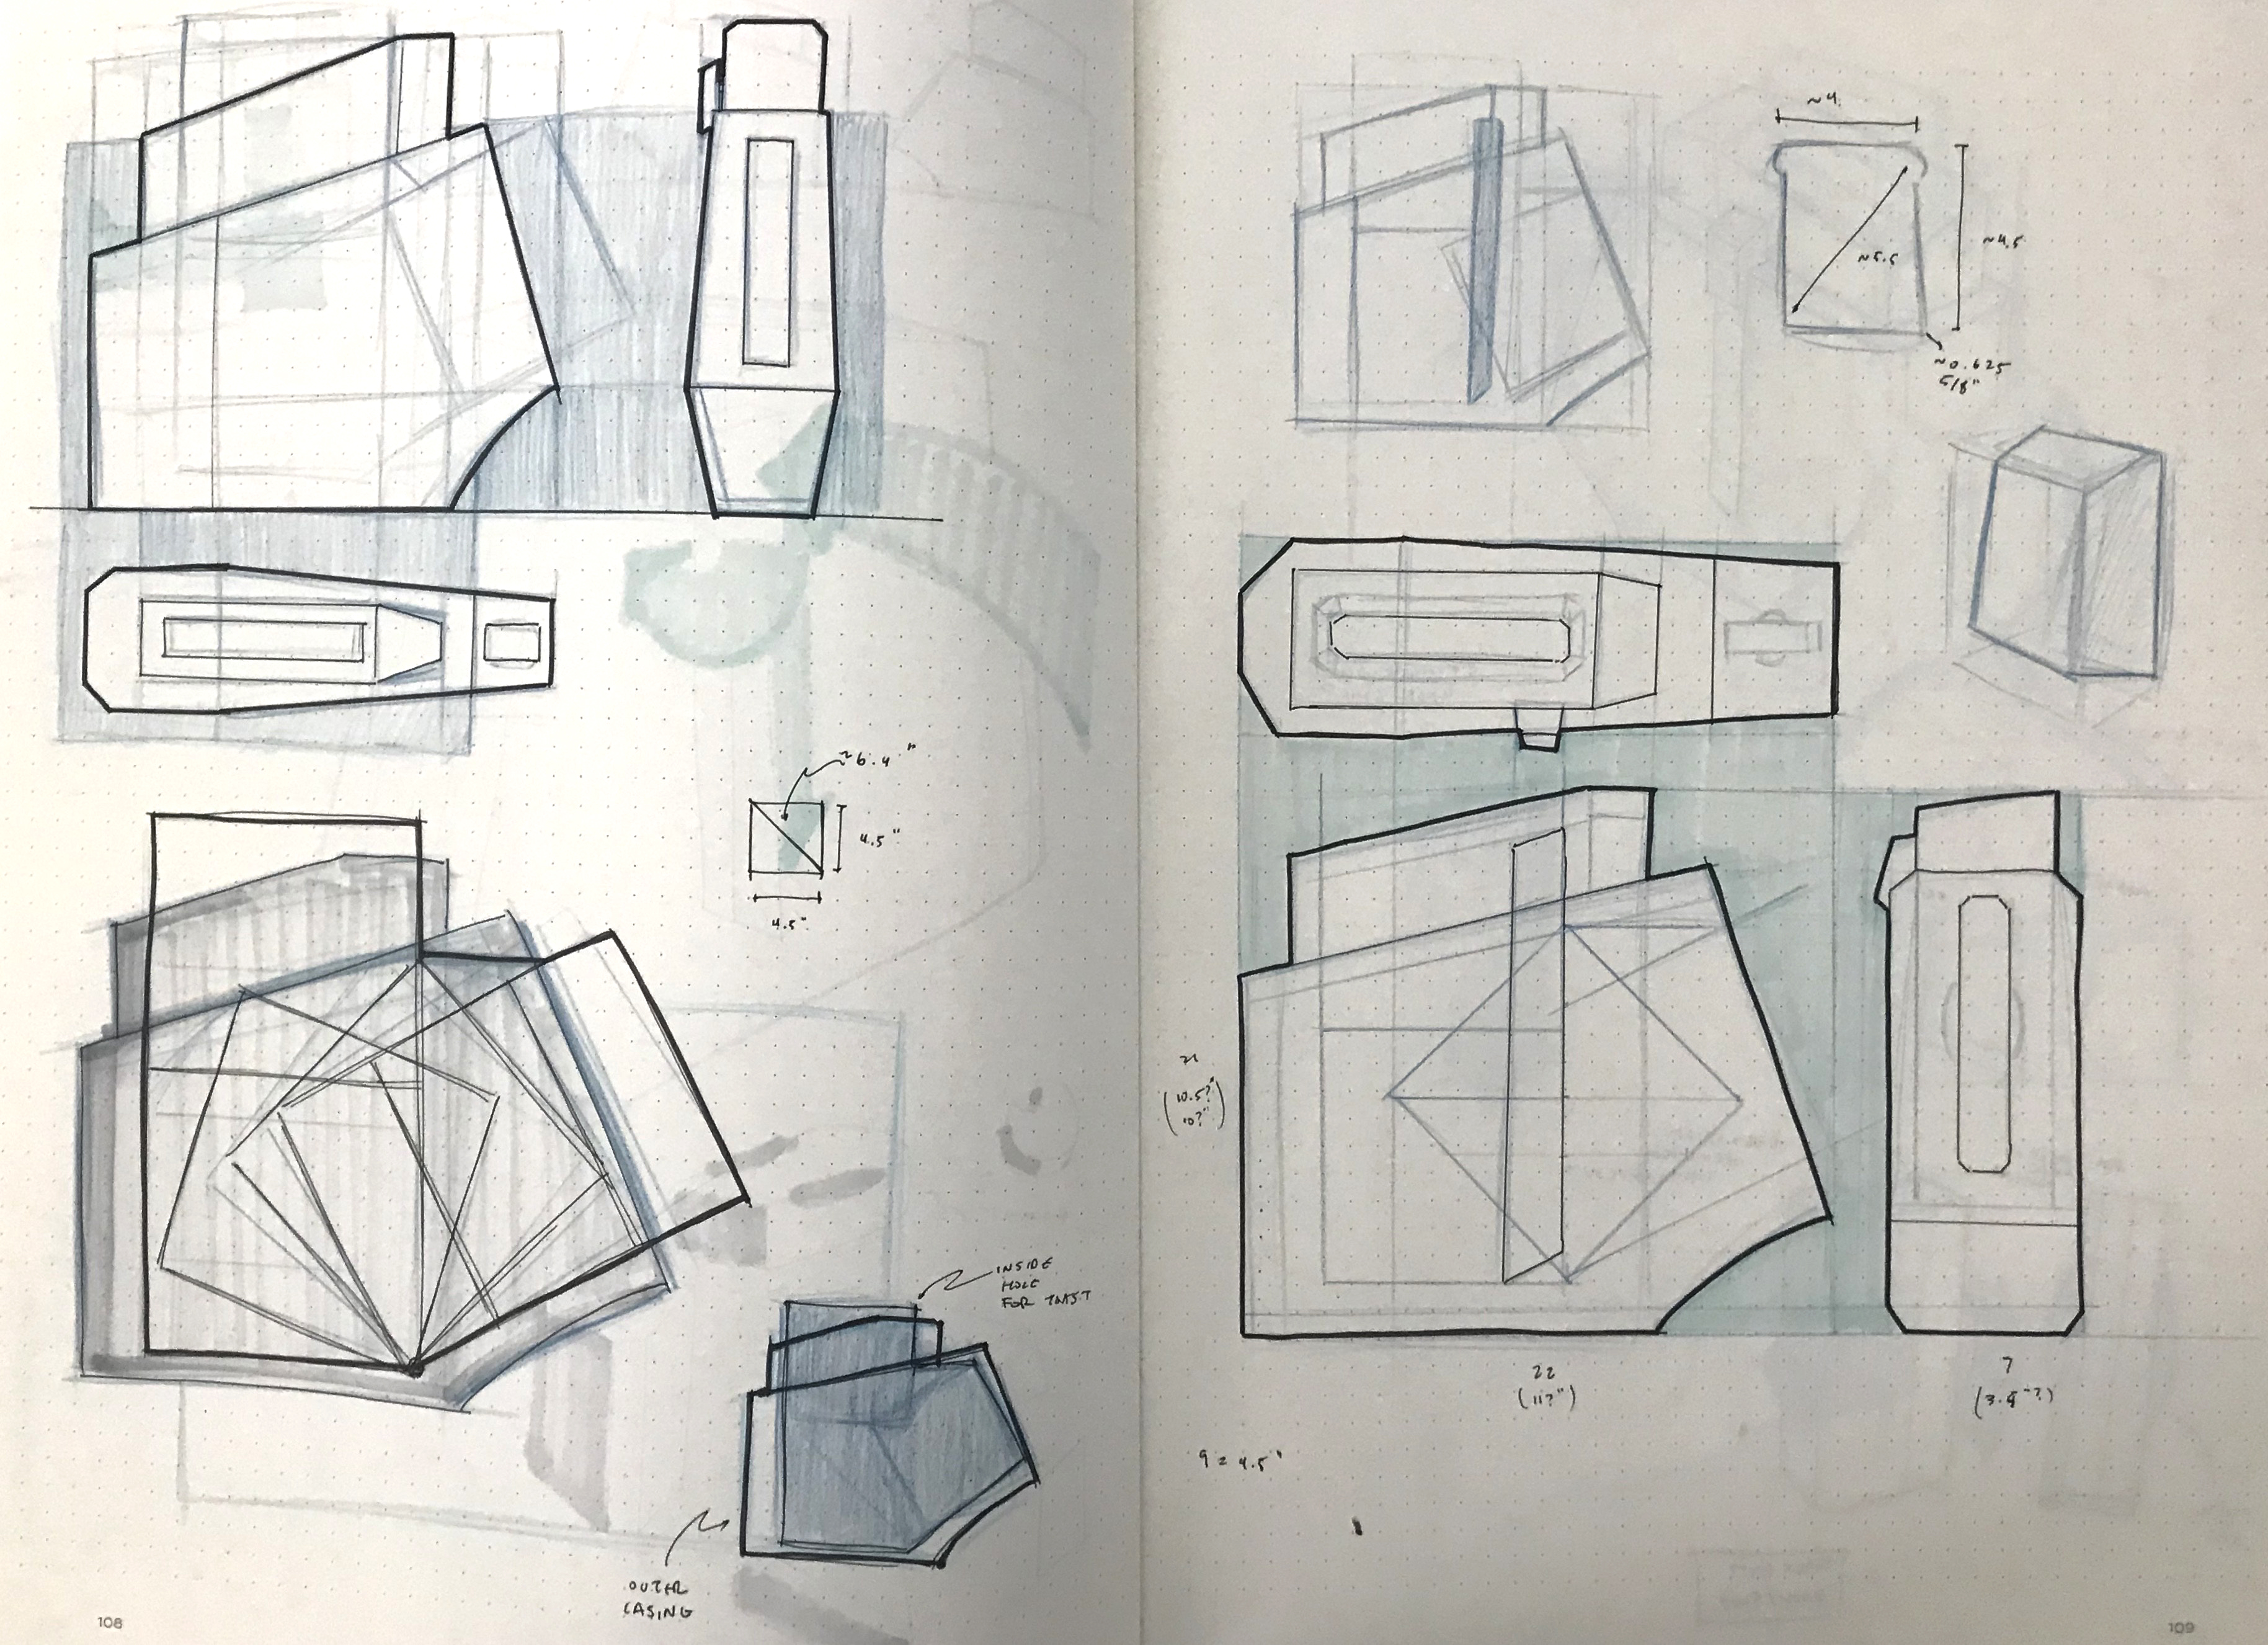 ~6.4"
4.5"
4.5"
INSIDE
HOLE
FOR TOAST
OUTER
CASING
108
~4
~4.5
~5.5
~0.625
5/8"
21
(10.5?"
10?")
22
(11?")
7
(3.5"?)
9 = 4.5"
109